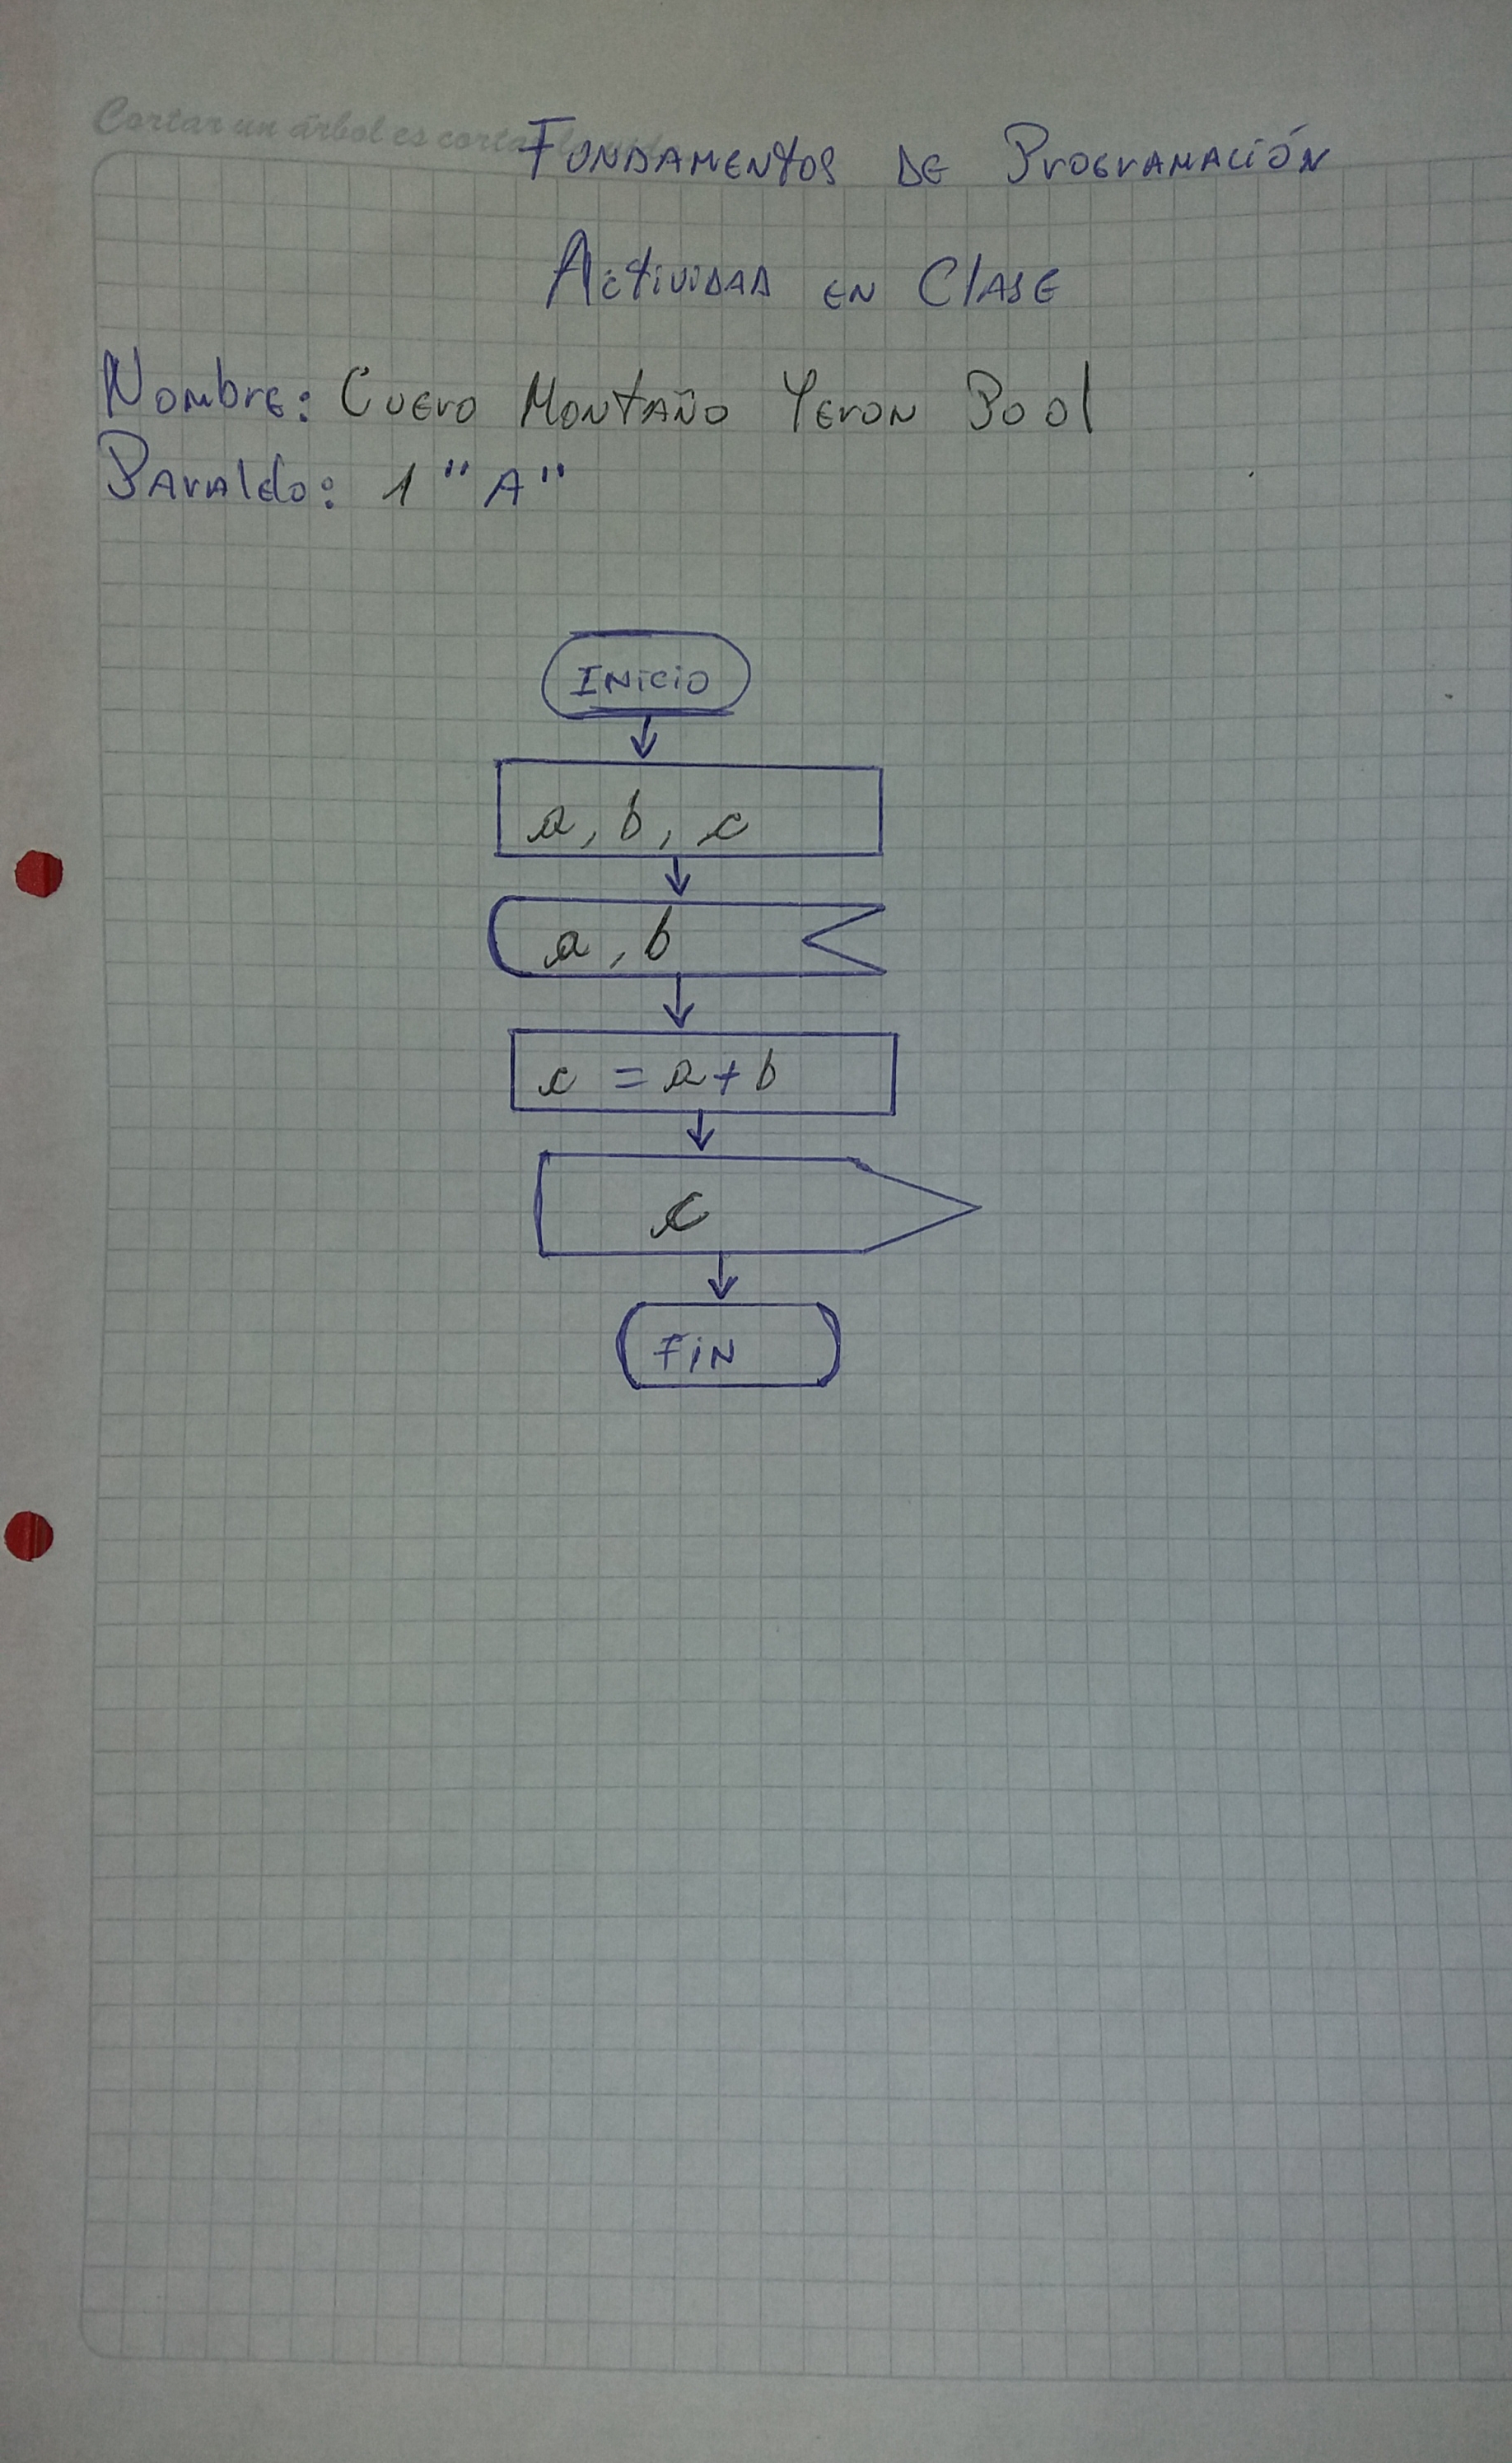 Cortar un árbol es cortar
Fundamentos de Programación
Actividad en Clase
Nombre: Cuero Montaño Yeron Pool
Paraleo: 1 "A"
Inicio
a, b, c
a, b
c = a + b
c
Fin